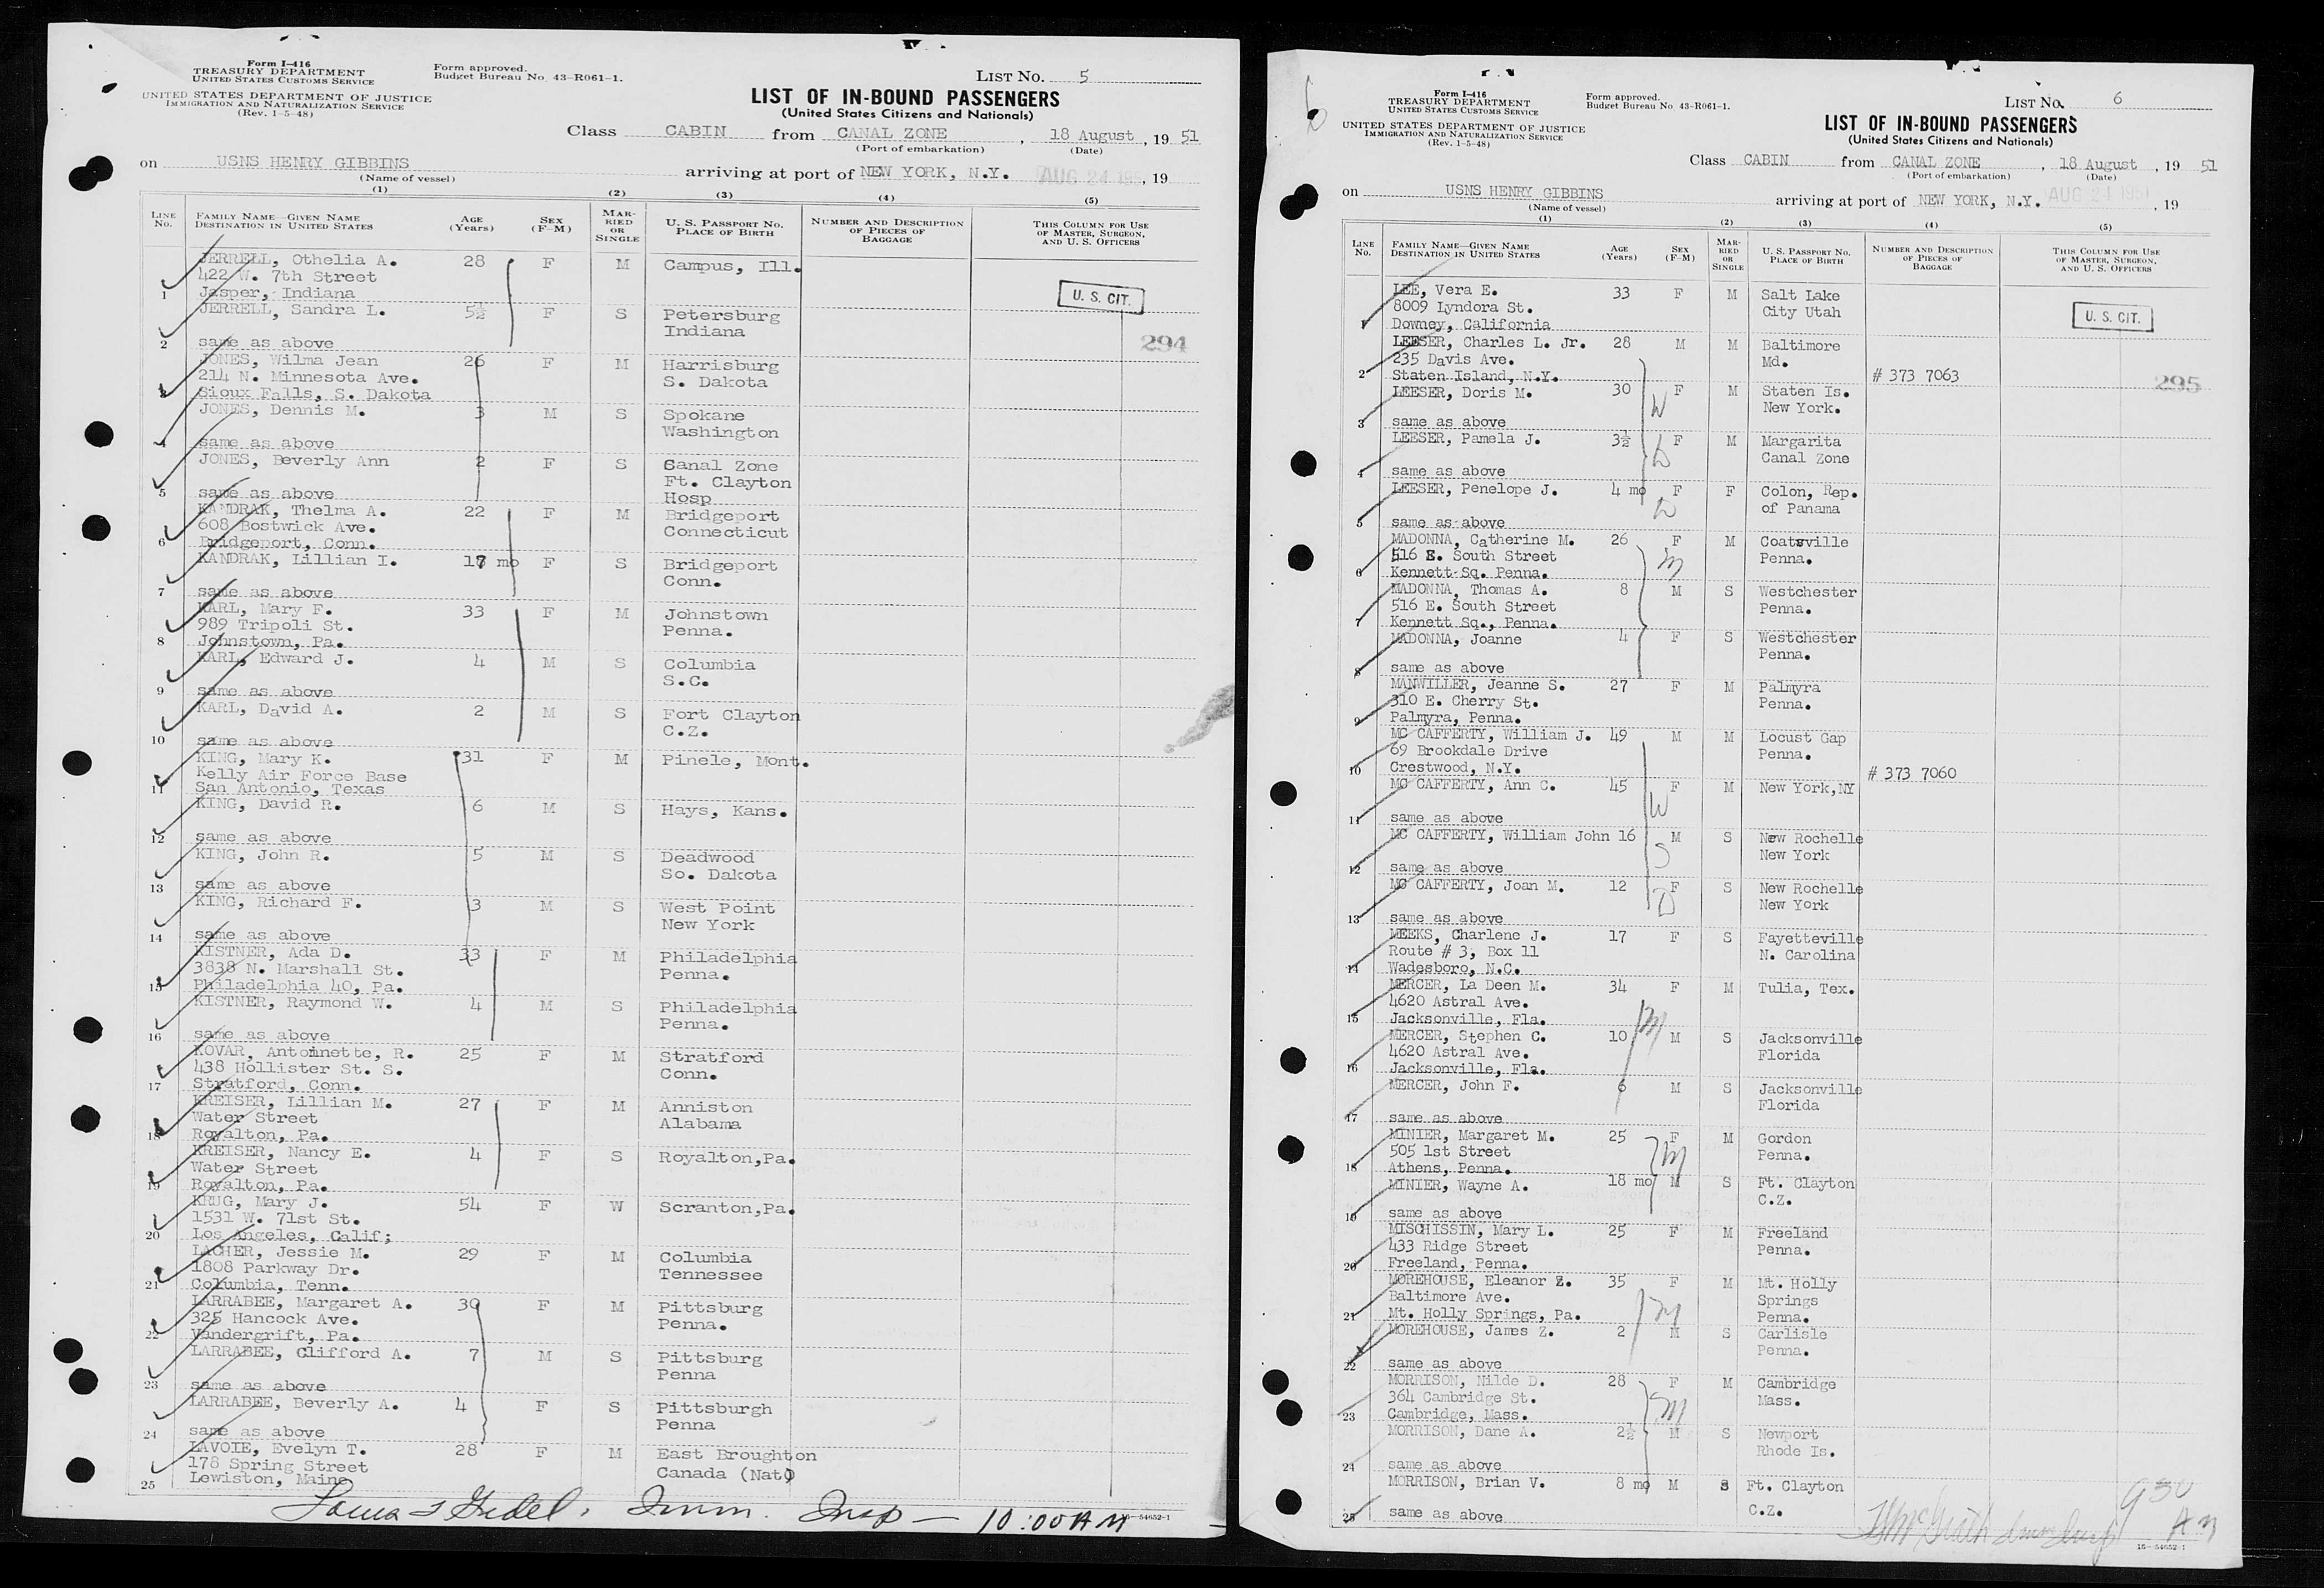 Form I-416
TREASURY DEPARTMENT
UNITED STATES CUSTOMS SERVICE
UNITED STATES DEPARTMENT OF JUSTICE
IMMIGRATION AND NATURALIZATION SERVICE
(Rev. 1-5-48)
Form approved.
Budget Bureau No. 43-R061-1.
LIST No. 5
LIST OF IN-BOUND PASSENGERS
(United States Citizens and Nationals)
Class CABIN from CANAL ZONE, 18 August, 19 51
(Port of embarkation) (Date)
on USNS HENRY GIBBINS arriving at port of NEW YORK, N.Y. AUG 24 1951, 19
(Name of vessel)
(1) (2) (3) (4) (5)
LINE No. FAMILY NAME—GIVEN NAME DESTINATION IN UNITED STATES AGE (Years) SEX (F-M) MARRIED OR SINGLE U. S. PASSPORT No. PLACE OF BIRTH NUMBER AND DESCRIPTION OF PIECES OF BAGGAGE THIS COLUMN FOR USE OF MASTER, SURGEON, AND U. S. OFFICERS
JERRELL, Othelia A. 28 F M Campus, Ill.
422 W. 7th Street
1 Jasper, Indiana U. S. CIT.
JERRELL, Sandra L. 5½ F S Petersburg
Indiana
2 same as above 294
JONES, Wilma Jean 26 F M Harrisburg
214 N. Minnesota Ave. S. Dakota
3 Sioux Falls, S. Dakota
JONES, Dennis M. 3 M S Spokane
Washington
4 same as above
JONES, Beverly Ann 2 F S Canal Zone
Ft. Clayton
5 same as above Hosp
KANDRAK, Thelma A. 22 F M Bridgeport
608 Bostwick Ave. Connecticut
6 Bridgeport, Conn.
KANDRAK, Lillian I. mo F S Bridgeport
Conn.
7 same as above
KARL, Mary F. 33 F M Johnstown
989 Tripoli St. Penna.
8 Johnstown, Pa.
KARL, Edward J. 4 M S Columbia
S.C.
9 same as above
KARL, David A. 2 M S Fort Clayton
C.Z.
10 same as above
KING, Mary K. 31 F M Pinele, Mont.
Kelly Air Force Base
11 San Antonio, Texas
KING, David R. 6 M S Hays, Kans.
12 same as above
KING, John R. 5 M S Deadwood
So. Dakota
13 same as above
KING, Richard F. 3 M S West Point
New York
14 same as above
KISTNER, Ada D. 33 F M Philadelphia
3838 N. Marshall St. Penna.
15 Philadelphia 40, Pa.
KISTNER, Raymond W. 4 M S Philadelphia
Penna.
16 same as above
KOVAR, Antoinnette, R. 25 F M Stratford
438 Hollister St. S. Conn.
17 Stratford, Conn.
KREISER, Lillian M. 27 F M Anniston
Water Street Alabama
18 Royalton, Pa.
KREISER, Nancy E. 4 F S Royalton,Pa.
Water Street
19 Royalton, Pa.
KRUG, Mary J. 54 F W Scranton,Pa.
1531 W. 71st St.
20 Los Angeles, Calif;
LACHER, Jessie M. 29 F M Columbia
1808 Parkway Dr. Tennessee
21 Columbia, Tenn.
LARRABEE, Margaret A. 30 F M Pittsburg
325 Hancock Ave. Penna.
22 Vandergrift, Pa.
LARRABEE, Clifford A. 7 M S Pittsburg
Penna
23 same as above
LARRABEE, Beverly A. 4 F S Pittsburgh
Penna
24 same as above
LAVOIE, Evelyn T. 28 F M East Broughton
178 Spring Street Canada (Nat)
25 Lewiston, Maine
Imm. Insp — 10:00 AM
16-54652-1
Form I-416
TREASURY DEPARTMENT
UNITED STATES CUSTOMS SERVICE
UNITED STATES DEPARTMENT OF JUSTICE
IMMIGRATION AND NATURALIZATION SERVICE
(Rev. 1-5-48)
Form approved.
Budget Bureau No. 43-R061-1.
LIST No. 6
LIST OF IN-BOUND PASSENGERS
(United States Citizens and Nationals)
Class CABIN from CANAL ZONE, 18 August, 19 51
(Port of embarkation) (Date)
on USNS HENRY GIBBINS arriving at port of NEW YORK, N.Y. AUG 24 1951, 19
(Name of vessel)
(1) (2) (3) (4) (5)
LINE No. FAMILY NAME—GIVEN NAME DESTINATION IN UNITED STATES AGE (Years) SEX (F-M) MARRIED OR SINGLE U. S. PASSPORT No. PLACE OF BIRTH NUMBER AND DESCRIPTION OF PIECES OF BAGGAGE THIS COLUMN FOR USE OF MASTER, SURGEON, AND U. S. OFFICERS
LEE, Vera E. 33 F M Salt Lake
8009 Lyndora St. City Utah
1 Downey, California U. S. CIT.
LEESER, Charles L. Jr. 28 M M Baltimore
235 Davis Ave. Md.
2 Staten Island, N.Y. # 373 7063 295
LEESER, Doris M. 30 W F M Staten Is.
New York.
3 same as above
LEESER, Pamela J. 3½ D F M Margarita
Canal Zone
4 same as above
LEESER, Penelope J. 4 mo D F F Colon, Rep.
of Panama
5 same as above
MADONNA, Catherine M. 26 F M Coatsville
516 E. South Street Penna.
6 Kennett Sq. Penna.
MADONNA, Thomas A. 8 M S Westchester
516 E. South Street Penna.
7 Kennett Sq., Penna.
MADONNA, Joanne 4 F S Westchester
Penna.
8 same as above
MANWILLER, Jeanne S. 27 F M Palmyra
310 E. Cherry St. Penna.
9 Palmyra, Penna.
MC CAFFERTY, William J. 49 M M Locust Gap
69 Brookdale Drive Penna.
10 Crestwood, N.Y. # 373 7060
MC CAFFERTY, Ann C. 45 W F M New York,NY
11 same as above
MC CAFFERTY, William John 16 S M S New Rochelle
New York
12 same as above
MC CAFFERTY, Joan M. 12 D F S New Rochelle
New York
13 same as above
MEEKS, Charlene J. 17 F S Fayetteville
Route # 3, Box 11 N. Carolina
14 Wadesboro, N.C.
MERCER, La Deen M. 34 F M Tulia, Tex.
4620 Astral Ave.
15 Jacksonville, Fla.
MERCER, Stephen C. 10 M S Jacksonville
4620 Astral Ave. Florida
16 Jacksonville, Fla.
MERCER, John F. 6 M S Jacksonville
Florida
17 same as above
MINIER, Margaret M. 25 F M Gordon
505 1st Street Penna.
18 Athens, Penna.
MINIER, Wayne A. 18 mo M S Ft. Clayton
C.Z.
19 same as above
MISCHISSIN, Mary L. 25 F M Freeland
433 Ridge Street Penna.
20 Freeland, Penna.
MOREHOUSE, Eleanor Z. 35 F M Mt. Holly
Baltimore Ave. Springs
21 Mt. Holly Springs, Pa. Penna.
MOREHOUSE, James Z. 2 M S Carlisle
Penna.
22 same as above
MORRISON, Nilde D. 28 F M Cambridge
364 Cambridge St. Mass.
23 Cambridge, Mass.
MORRISON, Dane A. 2½ M S Newport
Rhode Is.
24 same as above
MORRISON, Brian V. 8 mo M S Ft. Clayton
C.Z.
25 same as above
930 AM
16-54652-1